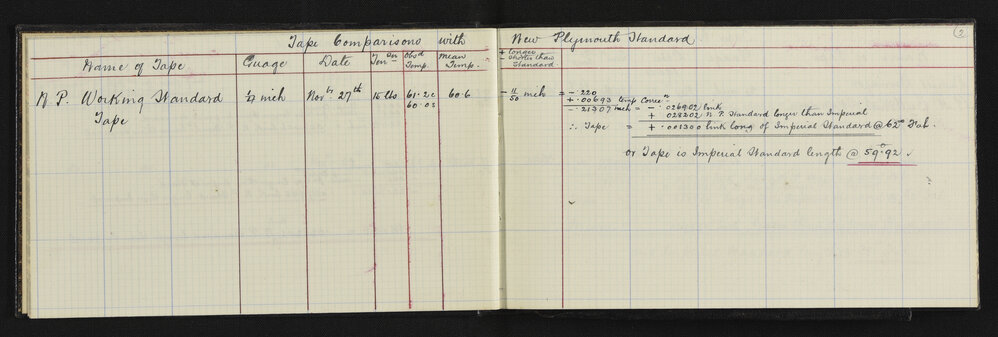 Tape Comparisons with New Plymouth Standard
2
Name of Tape Guage Date Tenon Obsd Temp. Mean Temp. + longer - shorter than Standard
N. P. Working Standard Tape ¼ inch Novbr 27th 15 lbs 61.2 60.03 60.6 - 11/50 inch = - .220
+ .00693 temp Correcn
- .21307 inch = - .026902 link
+ .028202 N. P. Standard longer than Imperial
∴ Tape = + .001300 link long of Imperial Standard @ 62° Fah.
or Tape is Imperial Standard length @ 59°.92